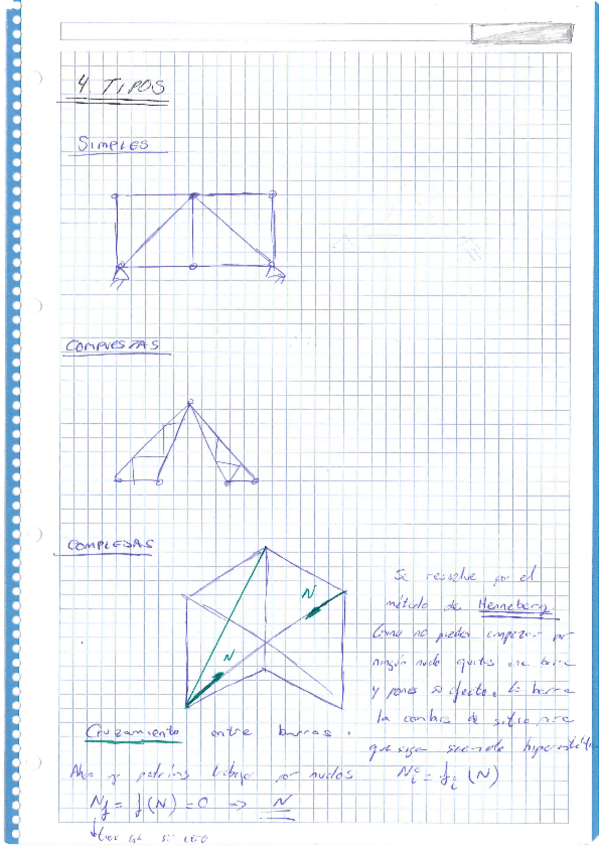 4. TIPOS
SIMPLES
COMPUESTAS
COMPLEJAS
N
N
Se resuelve por el
método de Henneberg.
Como no puedes empezar por
ningún nudo quitas una barra
y pones su efecto. La barra
la cambias de sitio para
que siga siendo hiperestática
Cruzamiento entre barras.
Ahora ya podrías trabajar por nudos
Nᵢᶜ = fᵢ (N)
N_f = f(N) = 0 → N